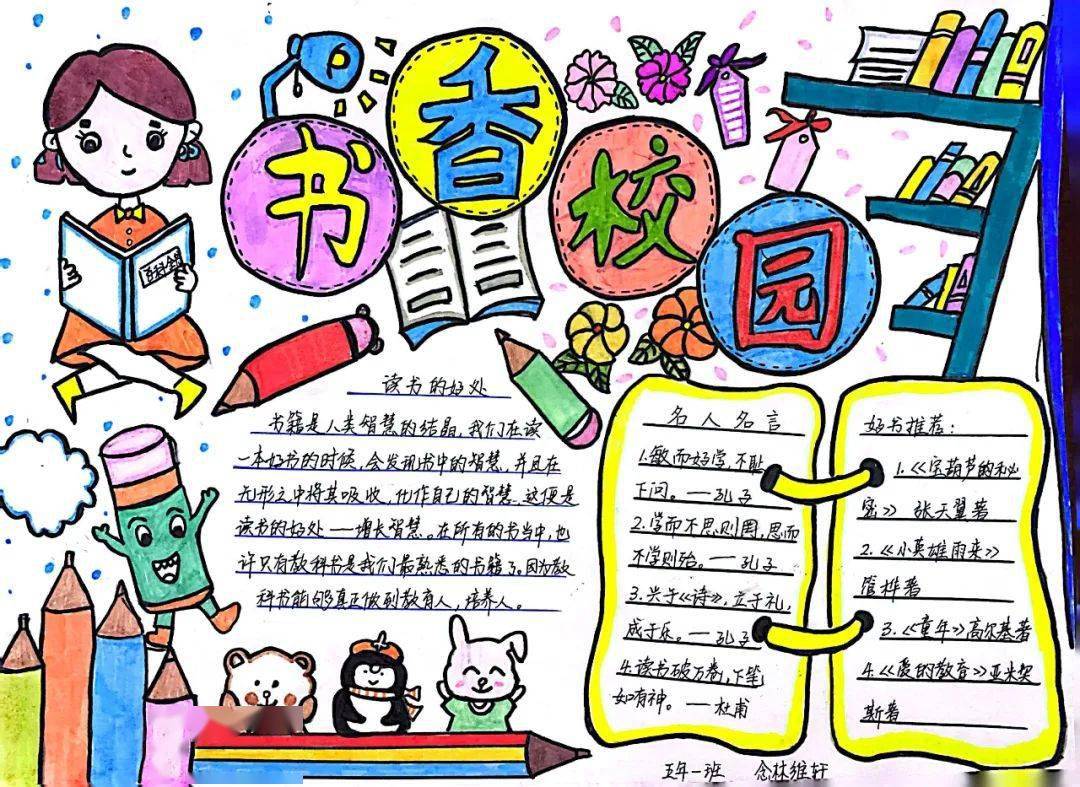 书香校园
百科全
读书的好处
书籍是人类智慧的结晶,我们在读
一本好书的时候,会发现书中的智慧,并且在
无形之中将其吸收,化作自己的智慧.这便是
读书的好处——增长智慧。在所有的书当中,也
许只有教科书是我们最熟悉的书籍了。因为教
科书能够真正做到教育人,培养人。
名人名言
1.敏而好学,不耻
下问。——孔子
2.学而不思则罔,思而
不学则殆。——孔子
3.兴于《诗》,立于礼,
成于乐。——孔子
4.读书破万卷,下笔
如有神。——杜甫
好书推荐:
1.《宝葫芦的秘
密》 张天翼著
2.《小英雄雨来》
管桦著
3.《童年》高尔基著
4.《爱的教育》亚米契
斯著
五年一班 念林维轩